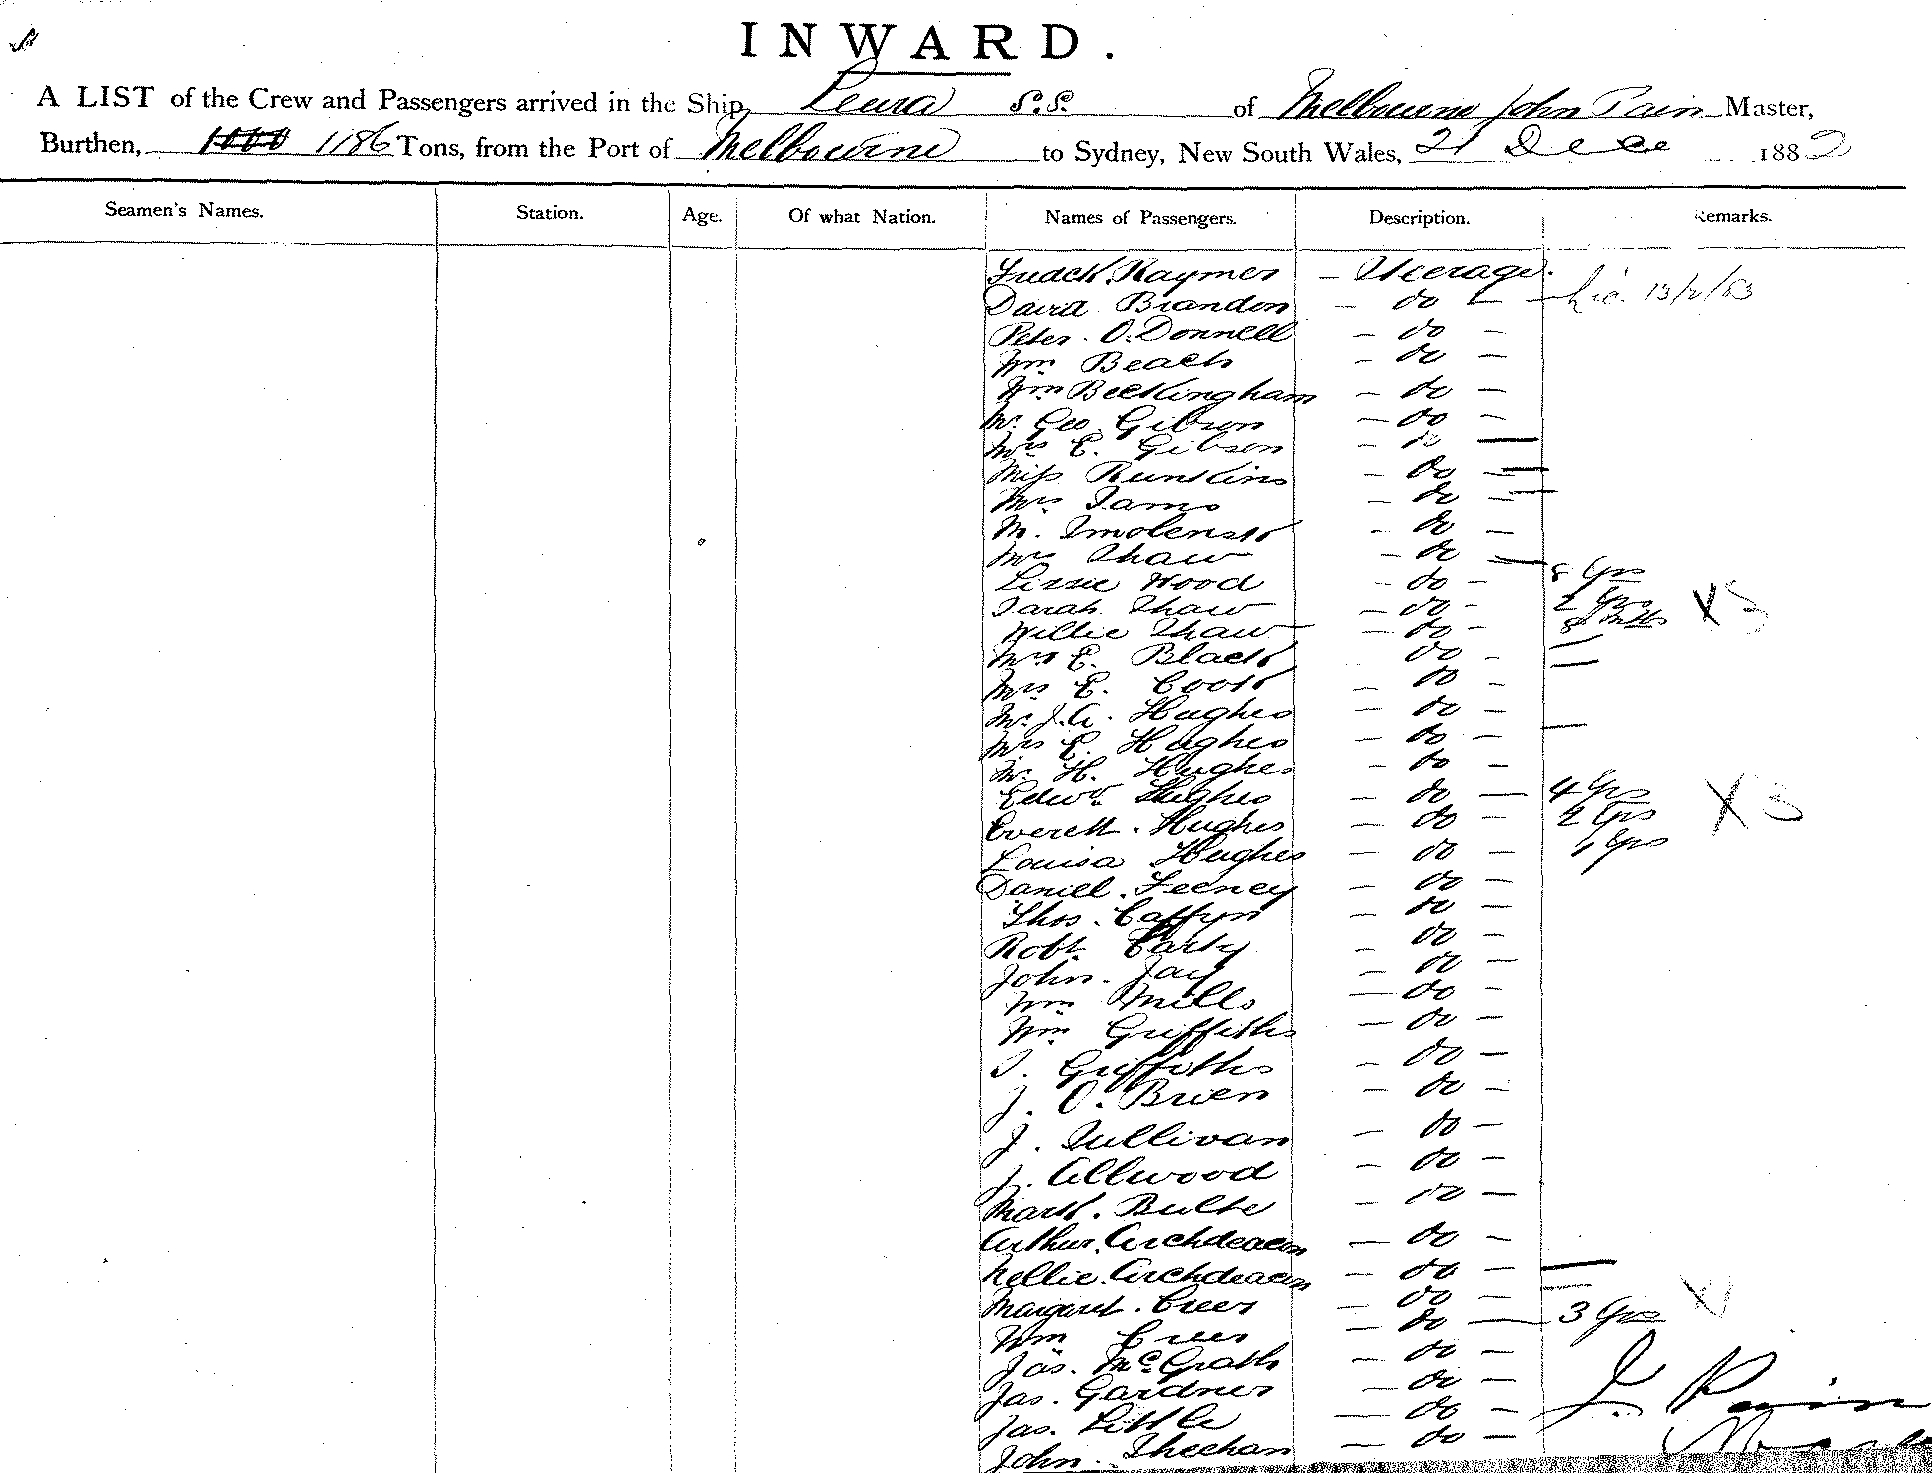 INWARD.
A LIST of the Crew and Passengers arrived in the Ship, Leura S.S. of Melbourne John Pain Master,
Burthen, 1000 1186 Tons, from the Port of Melbourne to Sydney, New South Wales, 21 Dece 1882
Seamen's Names. Station. Age. Of what Nation. Names of Passengers. Description. Remarks.
Fredck Raymer — Steerage.
David Brandon — do —
Peter. O.Donnell — do —
Wm Beach — do —
Wm Beckingham — do —
Mr. Geo. Gibson — do —
Mrs E. Gibson — do —
Miss Runkins — do —
Mrs Sams — do —
M. Smolensk — do —
Mrs Shaw — do —
Lizzie Wood — do — 8 Yrs
Sarah Shaw — do — 2 Yrs X 3
Willie Shaw — do — 8 Mths
Mrs E. Black do —
Mrs E. Cook — do —
Mr. J.A. Hughes — do —
Mrs E. Hughes — do —
Mr. H. Hughes — do —
Edwd Hughes — do — 4 Yrs X 3
Everett. Hughes — do — 2 Yrs
Louisa Hughes — do — 1 Yrs
Daniel. Feeney — do —
Thos. Caffyn — do —
Robt. Carty — do —
John. Jay — do —
Wm Mills — do —
Wm Griffiths — do —
S. Griffiths — do —
J. O'Brien — do —
J. Sullivan — do —
J. Allwood — do —
Mark. Bulte — do —
Arthur. Archdeacon — do —
Nellie. Archdeacon — do —
Margaret. Crees — do —
Wm Crees — do — 3 Yrs
Jas. McGrath — do —
Jas. Gardner — do —
Jas. Little — do — J. Pain
John.. Sheehan — do —